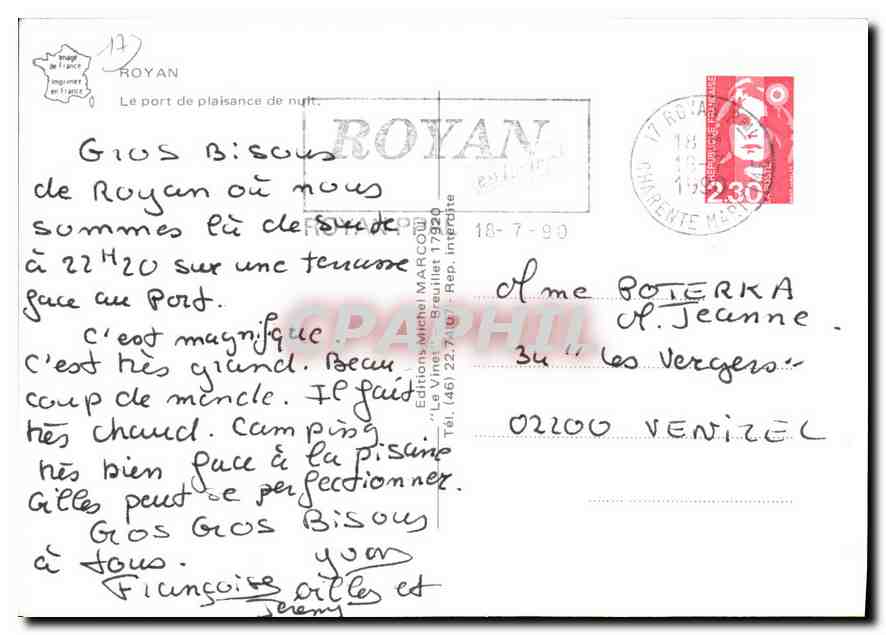 Image
de France
imprimée
en France
17
ROYAN
Le port de plaisance de nuit.
ROYAN
ROYAN PR
18-7-90
17 ROYAN
18
1990
CHARENTE MARITIME
REPUBLIQUE FRANÇAISE
2,30
LA POSTE
Gros Bisous
de Royan où nous
sommes là de suite
à 22H20 sur une terrasse
face au Port.
C'est magnifique.
C'est très grand. Beau
coup de monde. Il fait
très chaud. Camping
très bien face à la piscine
Gilles peut se perfectionner.
Gros Gros Bisous
à tous. Yvon
Françoise Gilles et
Jérémy
Editions Michel MARCOU
"Le Vinet" - Breuillet 17920
Tél. (46) 22.74.07 - Rep. interdite
CPAPHIL
Mme POTERKA
M. Jeanne.
34 "Les Vergers"
02200 VENIZEL